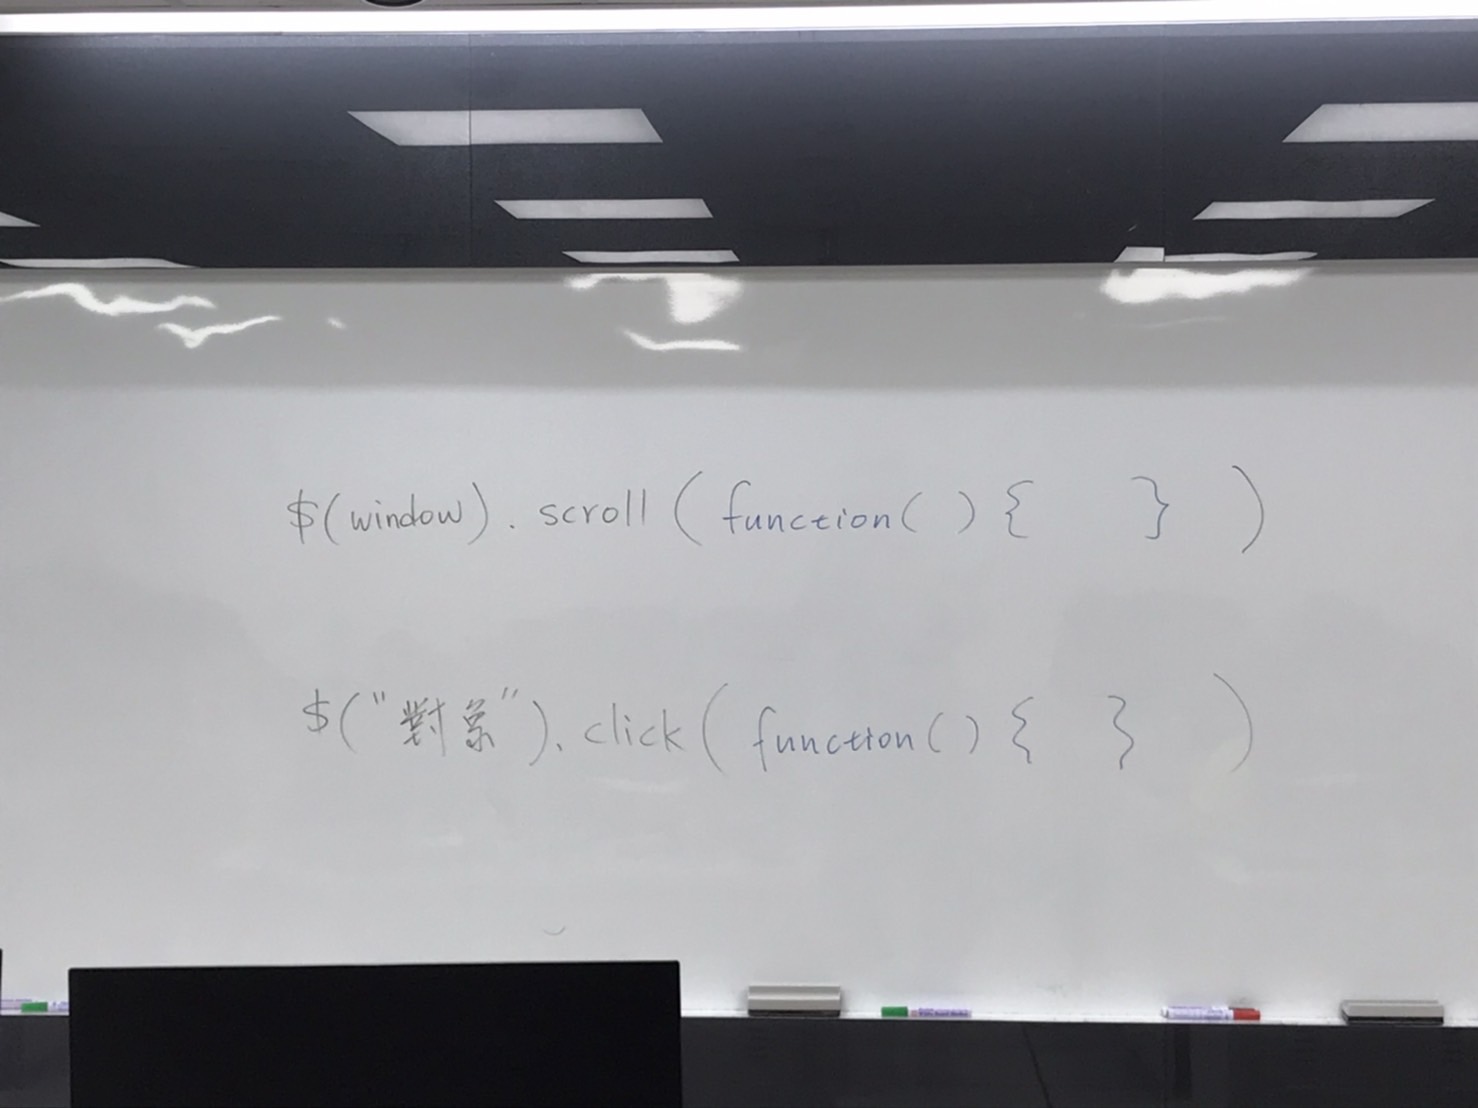 $(window).scroll(function(){ })
$("對象").click(function(){ })